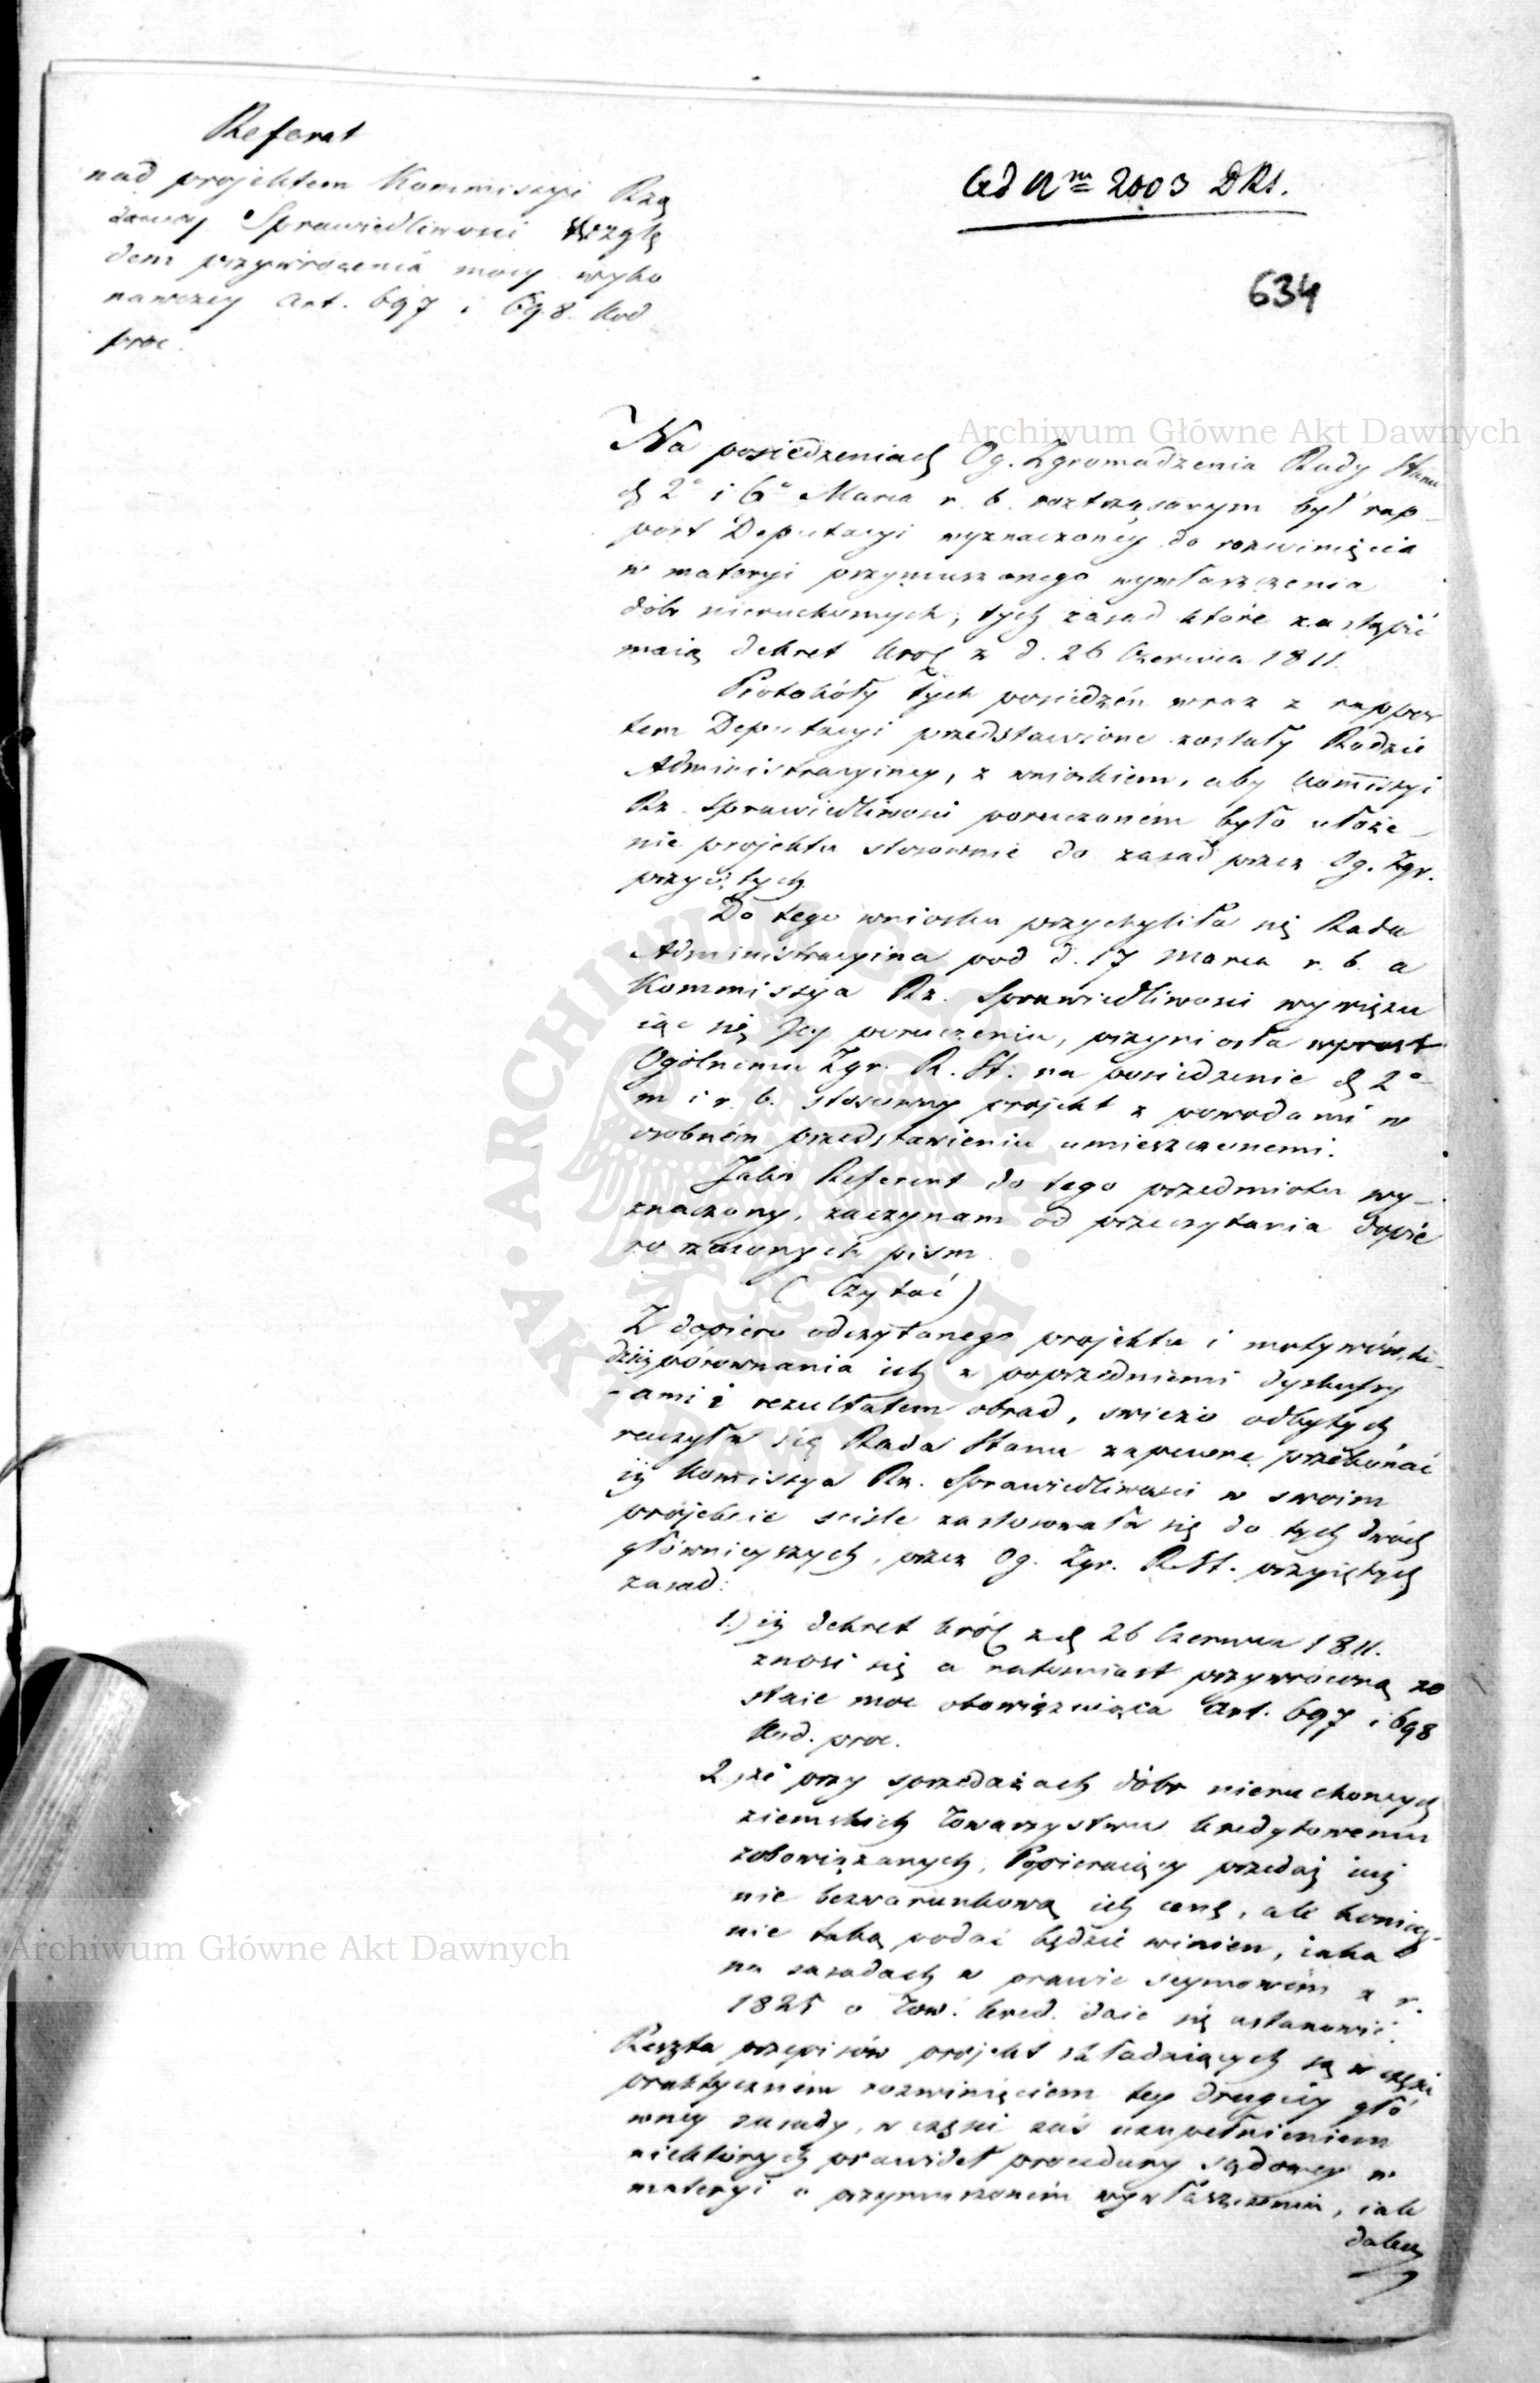 Referat
nad projektem Kommissyi Rzą
dowey Sprawiedliwosci wzglę
dem przywrócenia mocy wyko
nawczey Art. 697 i 698 Kod
proc.
Ad Nm 2003 DRS.
634
Na posiedzeniach Og. Zgromadzenia Rady Stanu
d. 2o i 6o Marca r. b. roztrząsanym był rap-
port Deputacyi wyznaczoney do rozwinięcia
w materyi przymuszonego wywłaszczenia
dóbr nieruchomych, tych zasad które zastąpić
maią dekret Król z d. 26 Czerwca 1811.
Protokóły tych posiedzeń wraz z rappor
tem Deputacyi przedstawione zostały Radzie
Administracyiney, z wnioskiem, aby Kommissyi
Rz. Sprawiedliwosci poruczoném było ułoże-
nie projektu stosownie do zasad przez Og. Zgr.
przyiętych.
Do tego wniosku przychyliła się Rada
Administracyina pod d. 17 Marca r. b. a
Kommissya Rz. Sprawiedliwosci wywięzu
iąc się Jey poruczeniu, przyniosła wprost
Ogólnemu Zgr. R. St. na posiedzenie d. 2o
m. i r. b. stosowny projekt z powodami w
osobném przedstawieniu umieszczonemi.
Jako Referent do tego przedmiotu wy-
znaczony, zaczynam od przeczytania dopie
ro rzeczonych pism.
(Czytać)
Z dopiero odczytanego projektu i motywów, tu-
dzież porównania ich z poprzedniemi dyskussy
-ami i rezultatem obrad, swieżo odbytych
raczyła się Rada Stanu zapewne przekonać
iż Kommissya Rz. Sprawiedliwosci w swoim
projekcie scisle zastosowała się do tych dwóch
główniejszych, przez Og. Zgr. R. St. przyiętych
zasad:
1.) iż dekret Król z d. 26 Czerwca 1811.
znosi się a natomiast przywróconą zo
staie moc obowięzuiąca Art. 697 i 698
Kod. proc.
2.) że przy sprzedażach dóbr nieruchomych
ziemskich Towarzystwu kredytowemu
zobowiązanych, Popieraiący przedaż iuż
nie bezwarunkową ich cenę, ale koniecz-
nie taką podać będzie winien, iaka
na zasadach w prawie seymowém z r.
1825 o Tow. kred. daie się ustanowić.
Reszta przepisów projekt składaiących są w części
praktyczném rozwinięciem tey drugiey głó
wney zasady, w części zaś uzupełnieniem
niektórych prawideł procedury sądowey w
materyi o przymuszoném wywłaszczeniu, iak
daley
Archiwum Główne Akt Dawnych
Archiwum Główne Akt Dawnych